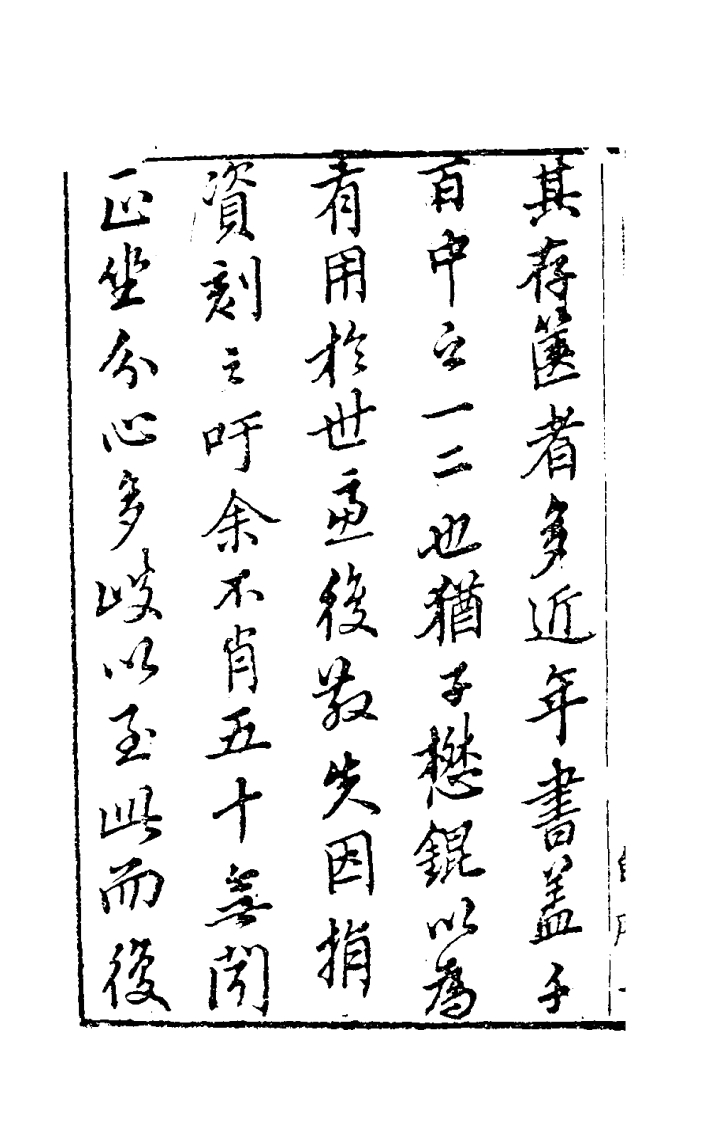 其存篋者多近年書蓋千
百中之一二也猶子懋錕以為
有用於世慮後散失因捐
資刻之吁余不肖五十無聞
正坐分心多歧以至此而後